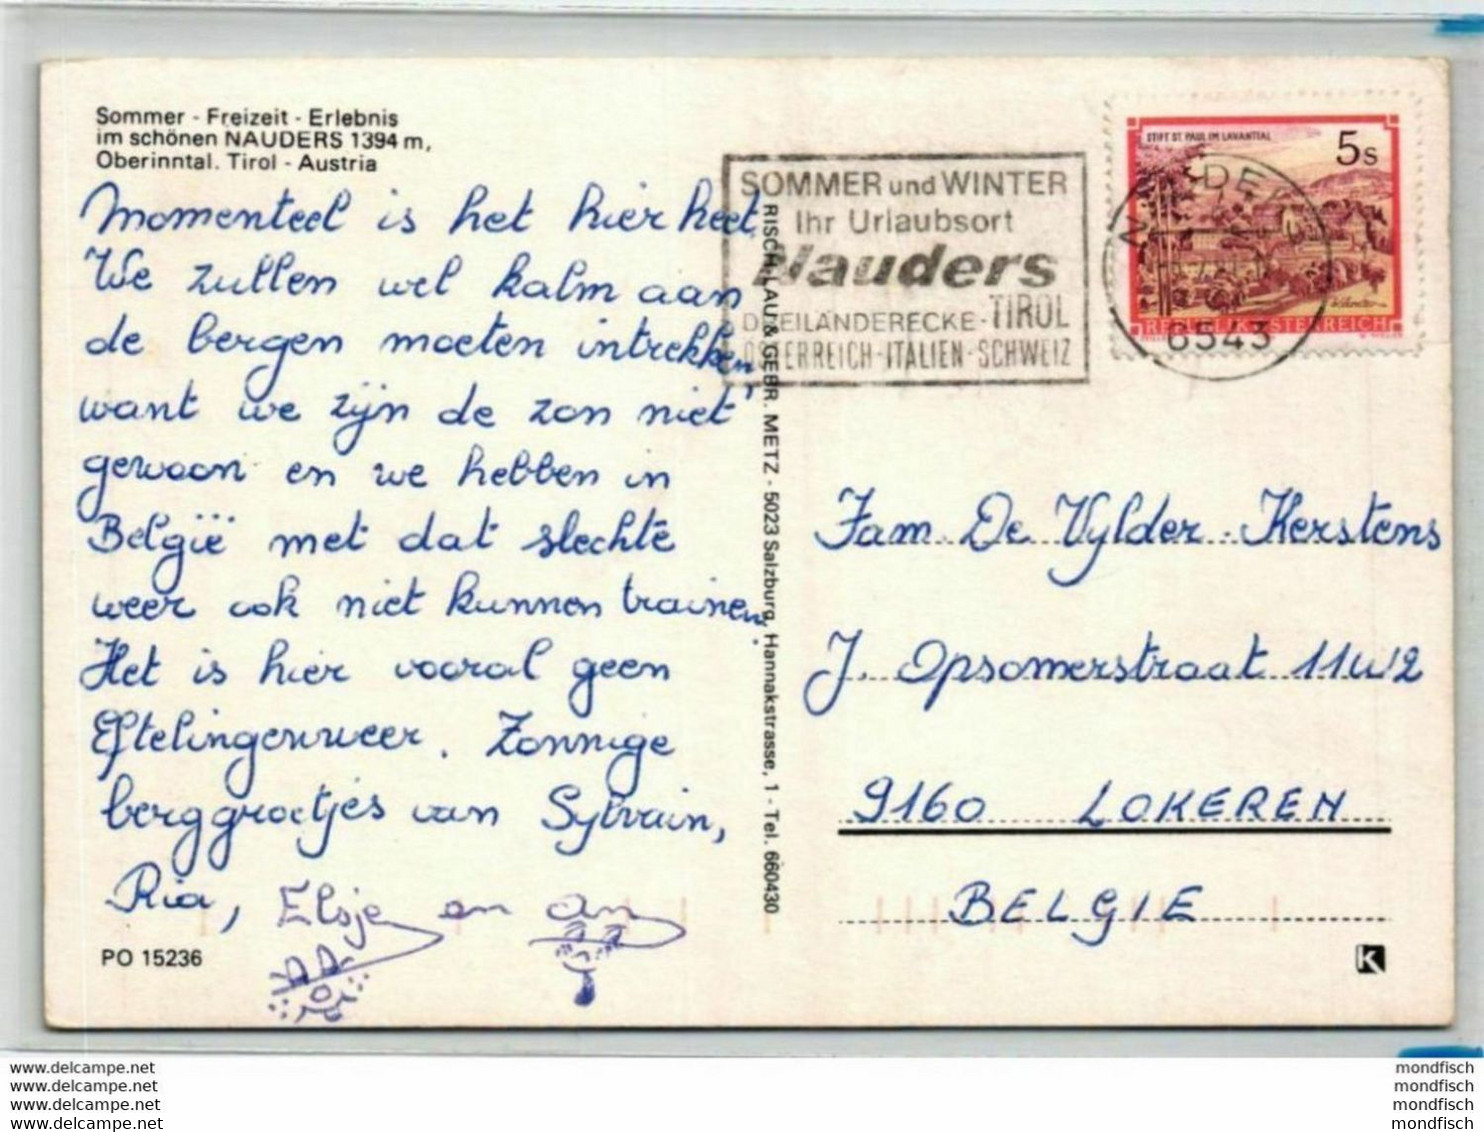 Sommer - Freizeit - Erlebnis
im schönen NAUDERS 1394 m,
Oberinntal. Tirol - Austria
Momenteel is het hier heet.
We zullen wel kalm aan
de bergen moeten intrekken,
want we zijn de zon niet
gewoon en we hebben in
België met dat slechte
weer ook niet kunnen trainen.
Het is hier vooral geen
Eftelingenweer. Zonnige
berggroetjes van Sylvain,
Ria, Elsje en An
PO 15236
RISCH-LAU & GEBR. METZ - 5023 Salzburg, Hannakstrasse, 1 - Tel. 660430
SOMMER und WINTER
Ihr Urlaubsort
Nauders
DREILÄNDERECKE-TIROL
ÖSTERREICH-ITALIEN-SCHWEIZ
STIFT ST. PAUL IM LAVANTTAL
5s
REPUBLIK ÖSTERREICH
NAUDERS
6543
Fam. De Vylder-Kerstens
J. Opsomerstraat 11W2
9160 LOKEREN
BELGIE
K
www.delcampe.net
www.delcampe.net
www.delcampe.net
www.delcampe.net
mondfisch
mondfisch
mondfisch
mondfisch